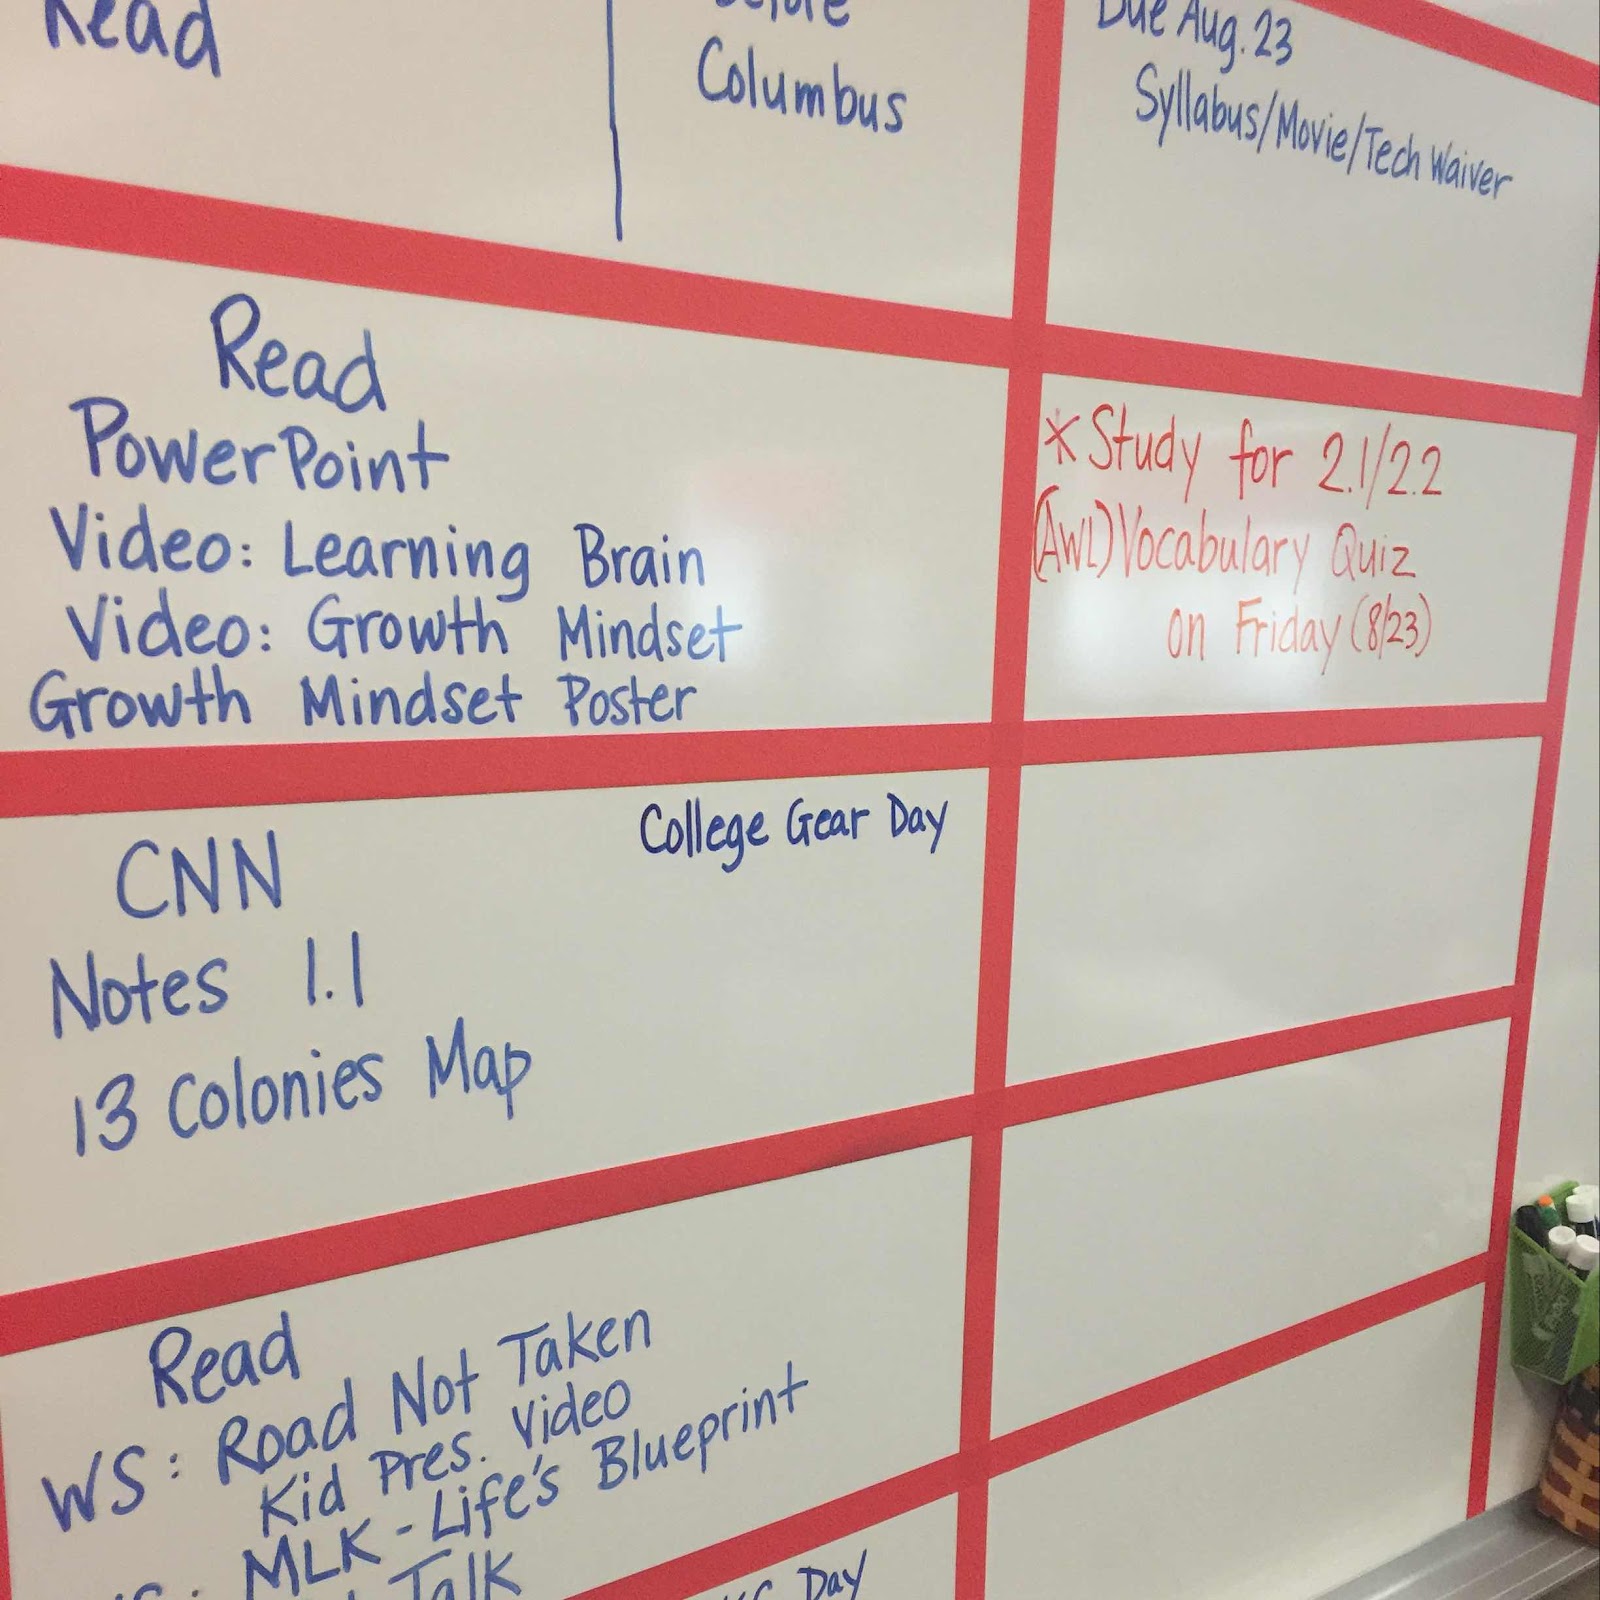 Read
Before
Columbus
Due Aug. 23
Syllabus/Movie/Tech Waiver
Read
PowerPoint
Video: Learning Brain
Video: Growth Mindset
Growth Mindset Poster
*Study for 2.1/2.2
(AWL) Vocabulary Quiz
on Friday (8/23)
CNN
College Gear Day
Notes 1.1
13 Colonies Map
Read
WS: Road Not Taken
Kid Pres. Video
MLK - Life's Blueprint
Talk
Day